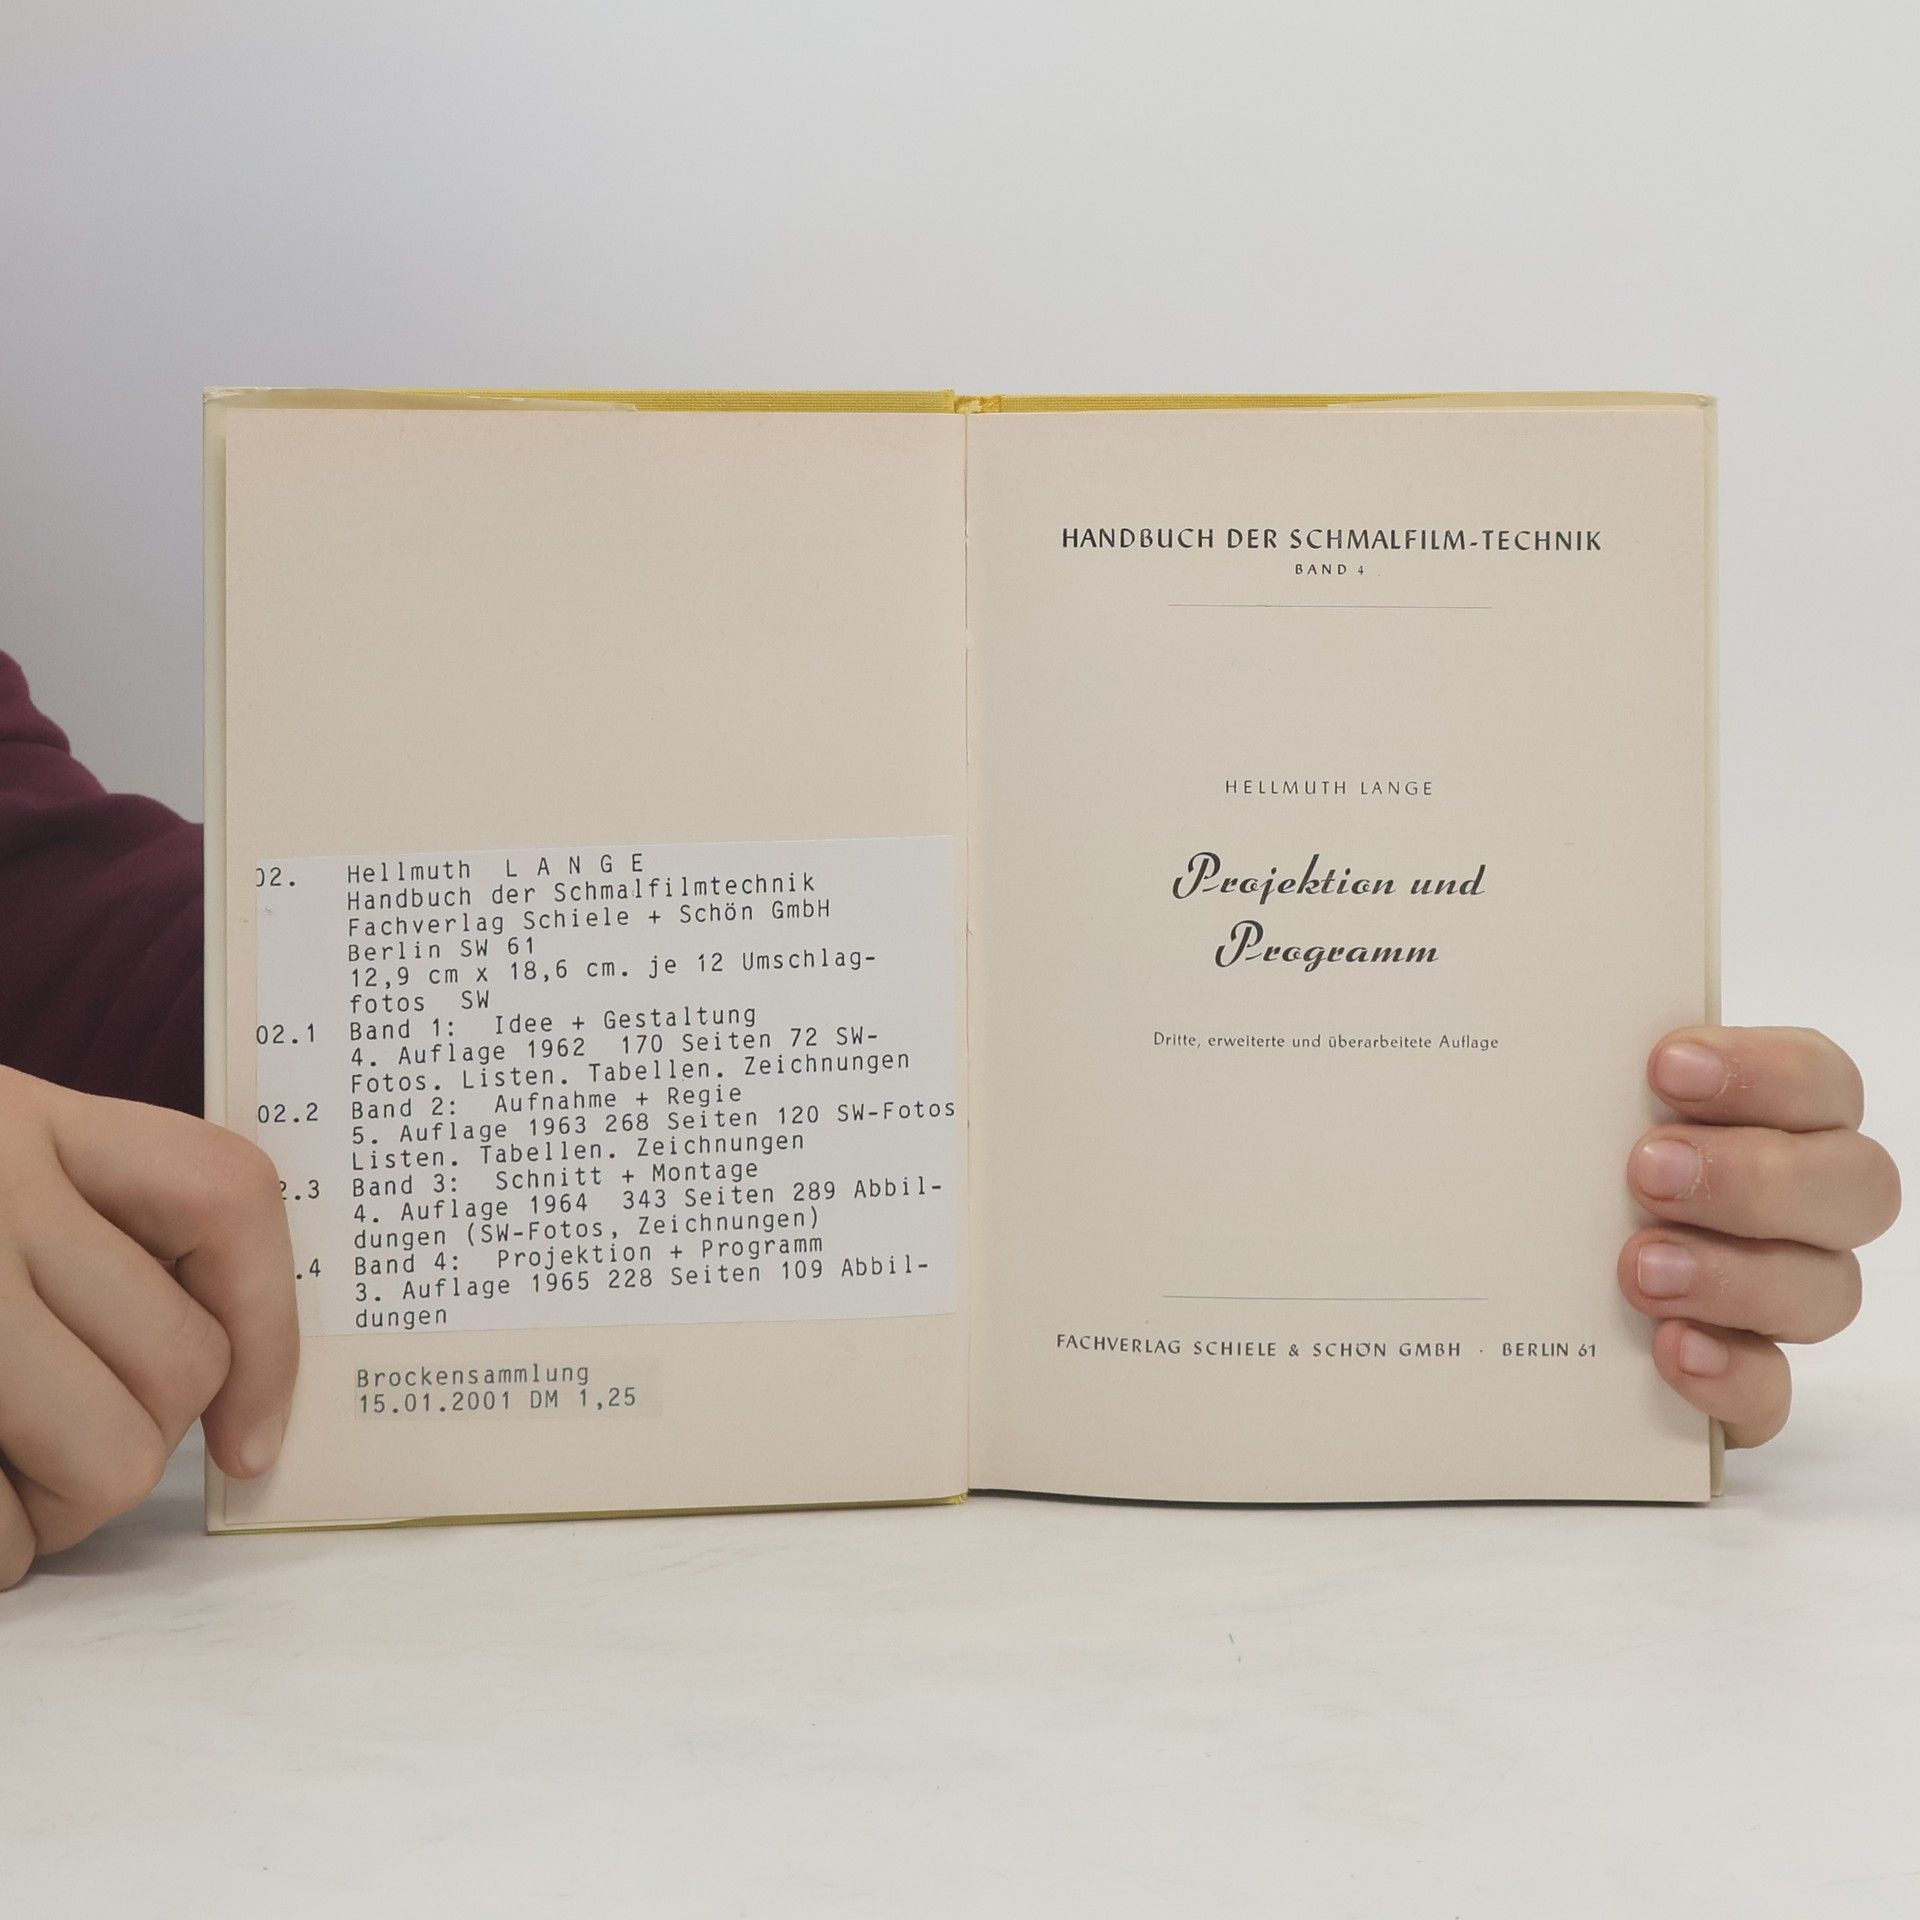 02. Hellmuth L A N G E
Handbuch der Schmalfilmtechnik
Fachverlag Schiele + Schön GmbH
Berlin SW 61
12,9 cm x 18,6 cm. je 12 Umschlag-
fotos SW
02.1 Band 1: Idee + Gestaltung
4. Auflage 1962 170 Seiten 72 SW-
Fotos. Listen. Tabellen. Zeichnungen
02.2 Band 2: Aufnahme + Regie
5. Auflage 1963 268 Seiten 120 SW-Fotos
Listen. Tabellen. Zeichnungen
2.3 Band 3: Schnitt + Montage
4. Auflage 1964 343 Seiten 289 Abbil-
dungen (SW-Fotos, Zeichnungen)
.4 Band 4: Projektion + Programm
3. Auflage 1965 228 Seiten 109 Abbil-
dungen
Brockensammlung
15.01.2001 DM 1,25
HANDBUCH DER SCHMALFILM-TECHNIK
BAND 4
HELLMUTH LANGE
Projektion und
Programm
Dritte, erweiterte und überarbeitete Auflage
FACHVERLAG SCHIELE & SCHÖN GMBH · BERLIN 61